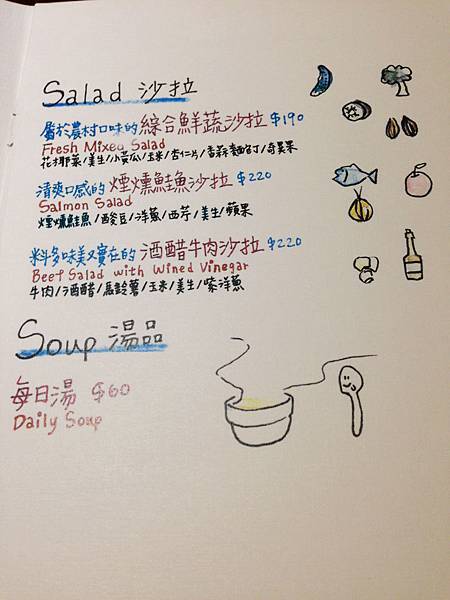 Salad 沙拉
屬於農村口味的 綜合鮮蔬沙拉 $190
Fresh Mixed Salad
花椰菜/美生/小黃瓜/玉米/杏仁片/香蒜麵包丁/奇異果
清爽口感的 煙燻鮭魚沙拉 $220
Salmon Salad
煙燻鮭魚/酸豆/洋蔥/西芹/美生/蘋果
料多味美又實在的 酒醋牛肉沙拉 $220
Beef Salad with Wined Vinegar
牛肉/酒醋/馬鈴薯/玉米/美生/紫洋蔥
Soup 湯品
每日湯 $60
Daily Soup